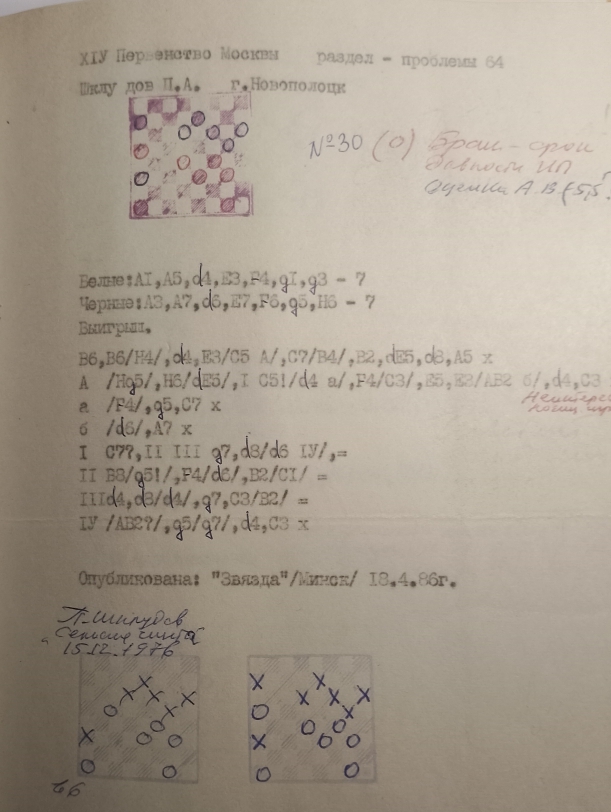 XIУ Первенство Москвы раздел - проблемы 64
Шклудов П.А. г.Новополоцк
№30 (0) Брак - срок
давности ИП
оценка А.В (5,5.
Белые:AI,A5,d4,E3,F4,gI,g3 - 7
Черные:A3,A7,d6,E7,F6,g5,H6 - 7
Выигрыш.
B6,B6/H4/,d4,E3/C5 A/,C7/B4/,B2,dE5,d8,A5 x
A /Hg5/,H5/dE5/,I C5!/d4 а/,F4/C3/,E5,E3/AB2 б/,d4,C3
а /F4/,g5,C7 x
б /d6/,A7 x
I C7?,II III g7,d8/d6 IУ/,=
II B8/g5!/,F4/d6/,B2/CI/ =
IIId4,d8/d4/,g7,C3/B2/ =
IУ /AB2?/,g5/g7/,d4,C3 x
Опубликована: "Звязда"/Минск/ I8.4.86г.
П. Шклудов
15.12.1976